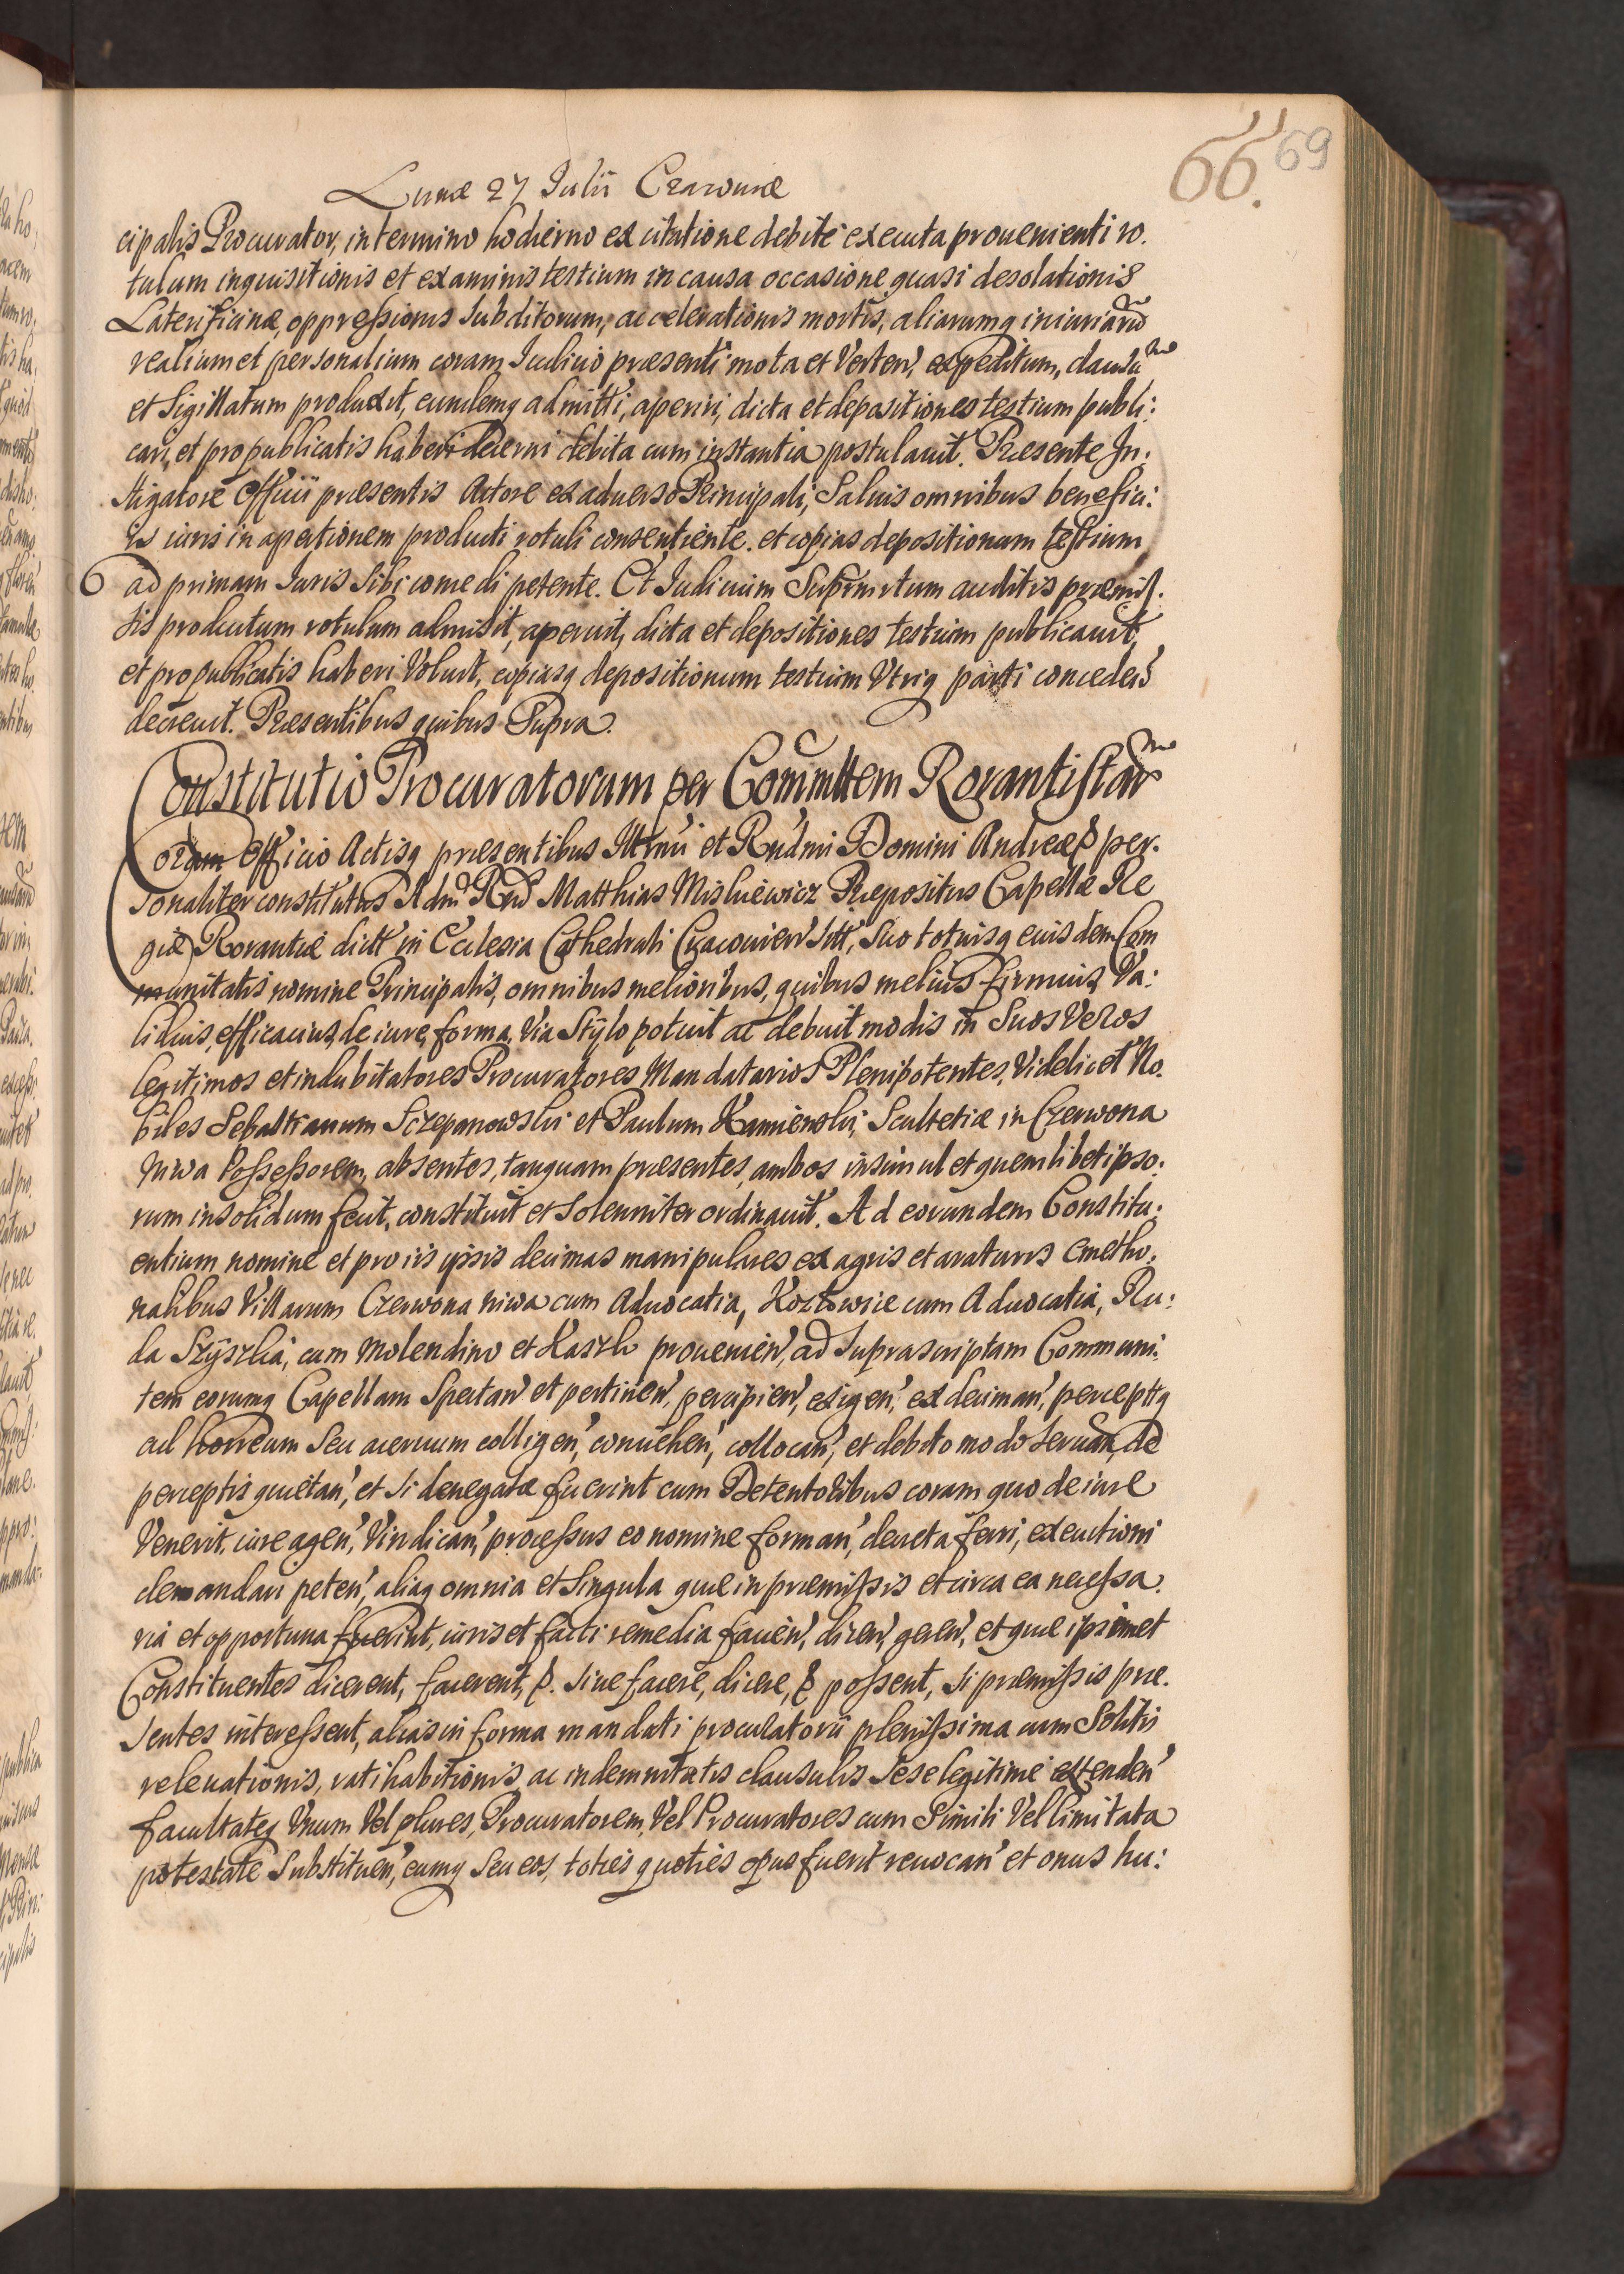 66. 69
Lunæ 27 Iulii Cracoviæ
cipalis Procurator, in termino hodierno ex citatione debite executa prouenienti ro.
tulum inquisitionis et examinis testium in causa occasione quasi desolationis
Laterificinæ, oppressionis Subditorum, accelerationis mortis, aliarumq iniuriaru
realium et personalium coram Iudicio præsenti mota et Verten, expeditum, clausu
et Sigillatum produxit, eundemq admitti, aperiri, dicta et depositiones testium publi:
cari, et pro publicatis haberi decerni debita cum instantia postulauit. Præsente In:
stigatore Officii præsentis Actore ex aduerso Principali, Saluis omnibus benefici:
is iuris in apertionem producti rotuli consentiente. et copias depositionum testium
ad primam Iuris Sibi concedi petente. Et Iudicium auditis præmis.
sis productum rotulum admisit, aperuit, dicta et depositiones testium publicauit,
et pro publicatis haberi Voluit, copiasq depositionum testium Vtriq parti conceden
decreuit. Præsentibus quibus Supra.
Constitutio Procuratorum per Commttem Rorantistaru
Coram Officio Actisq præsentibus Illrmi et Rndmi Domini Andreæ & per.
sonaliter constitutus Adm Rnd Matthias Misliewicz Præpositus Capellæ Re
giæ Rorantiæ dictt in Ecclesia Cathedrali Cracouien sitt, Suo totiusq eiusdem Com
munitatis nomine Principalis, omnibus melioribus, quibus melius firmius, Va:
lidius, efficacius, de iure, forma, Via Stylo potuit ac debuit modis in Suos Veros
legitimos et indubitatores Procuratores Mandatarios Plenipotentes, Videlicet No.
biles Sebastianum Sczepanowski et Paulum Kamienski, Scultetiæ in Czerwona
Niwa Possessorem, absentes, tanquam præsentes, ambos insimul et quemlibet ipso:
rum in solidum fecit, constituit et Solenniter ordinauit. Ad eorundem Constitu:
entium nomine et pro iis ipsis decimas manipulares ex agris et araturis Cmetho:
nalibus Villarum Czerwona niwa cum Aduocatia, Kozłowice cum Aduocatia, Ru:
da Szyszka, cum Molendino et prouenien, ad Suprascriptam Communi:
tem eorumq Capellam Spectan et pertinen, percipien, exigen, ex deciman, perceptq
ad horreum Seu aceruum colligen, conuehen, collocan, et debito modo Seruan, de
perceptis quietan, et Si denegatæ fuerint cum Detentoribus coram quo de iure
Venerit, iure agen, Vindican, processus eo nomine forman, decreta ferri, executioni
demandari peten, aliaq omnia et Singula quæ in præmissis et circa ea necessa.
ria et opportuna fuerint, iuris et facti remedia facien, dicen, geren, et quæ ipsimet
Constituentes dicerent, facerent, &. siue facere, dicere, & possent, Si præmissis præ.
sentes interessent, alias in forma mandati procuratorii plenissima cum Solitis
releuationis, ratihabitionis, ac indemnitatis clausulis Sese legitime extenden
facultateq Vnum Vel plures, Procuratorem, Vel Procuratores cum Simili Vel limitata
potestate Substituen, eumq Seu eos, toties quoties opus fuerit reuocan et onus hu: